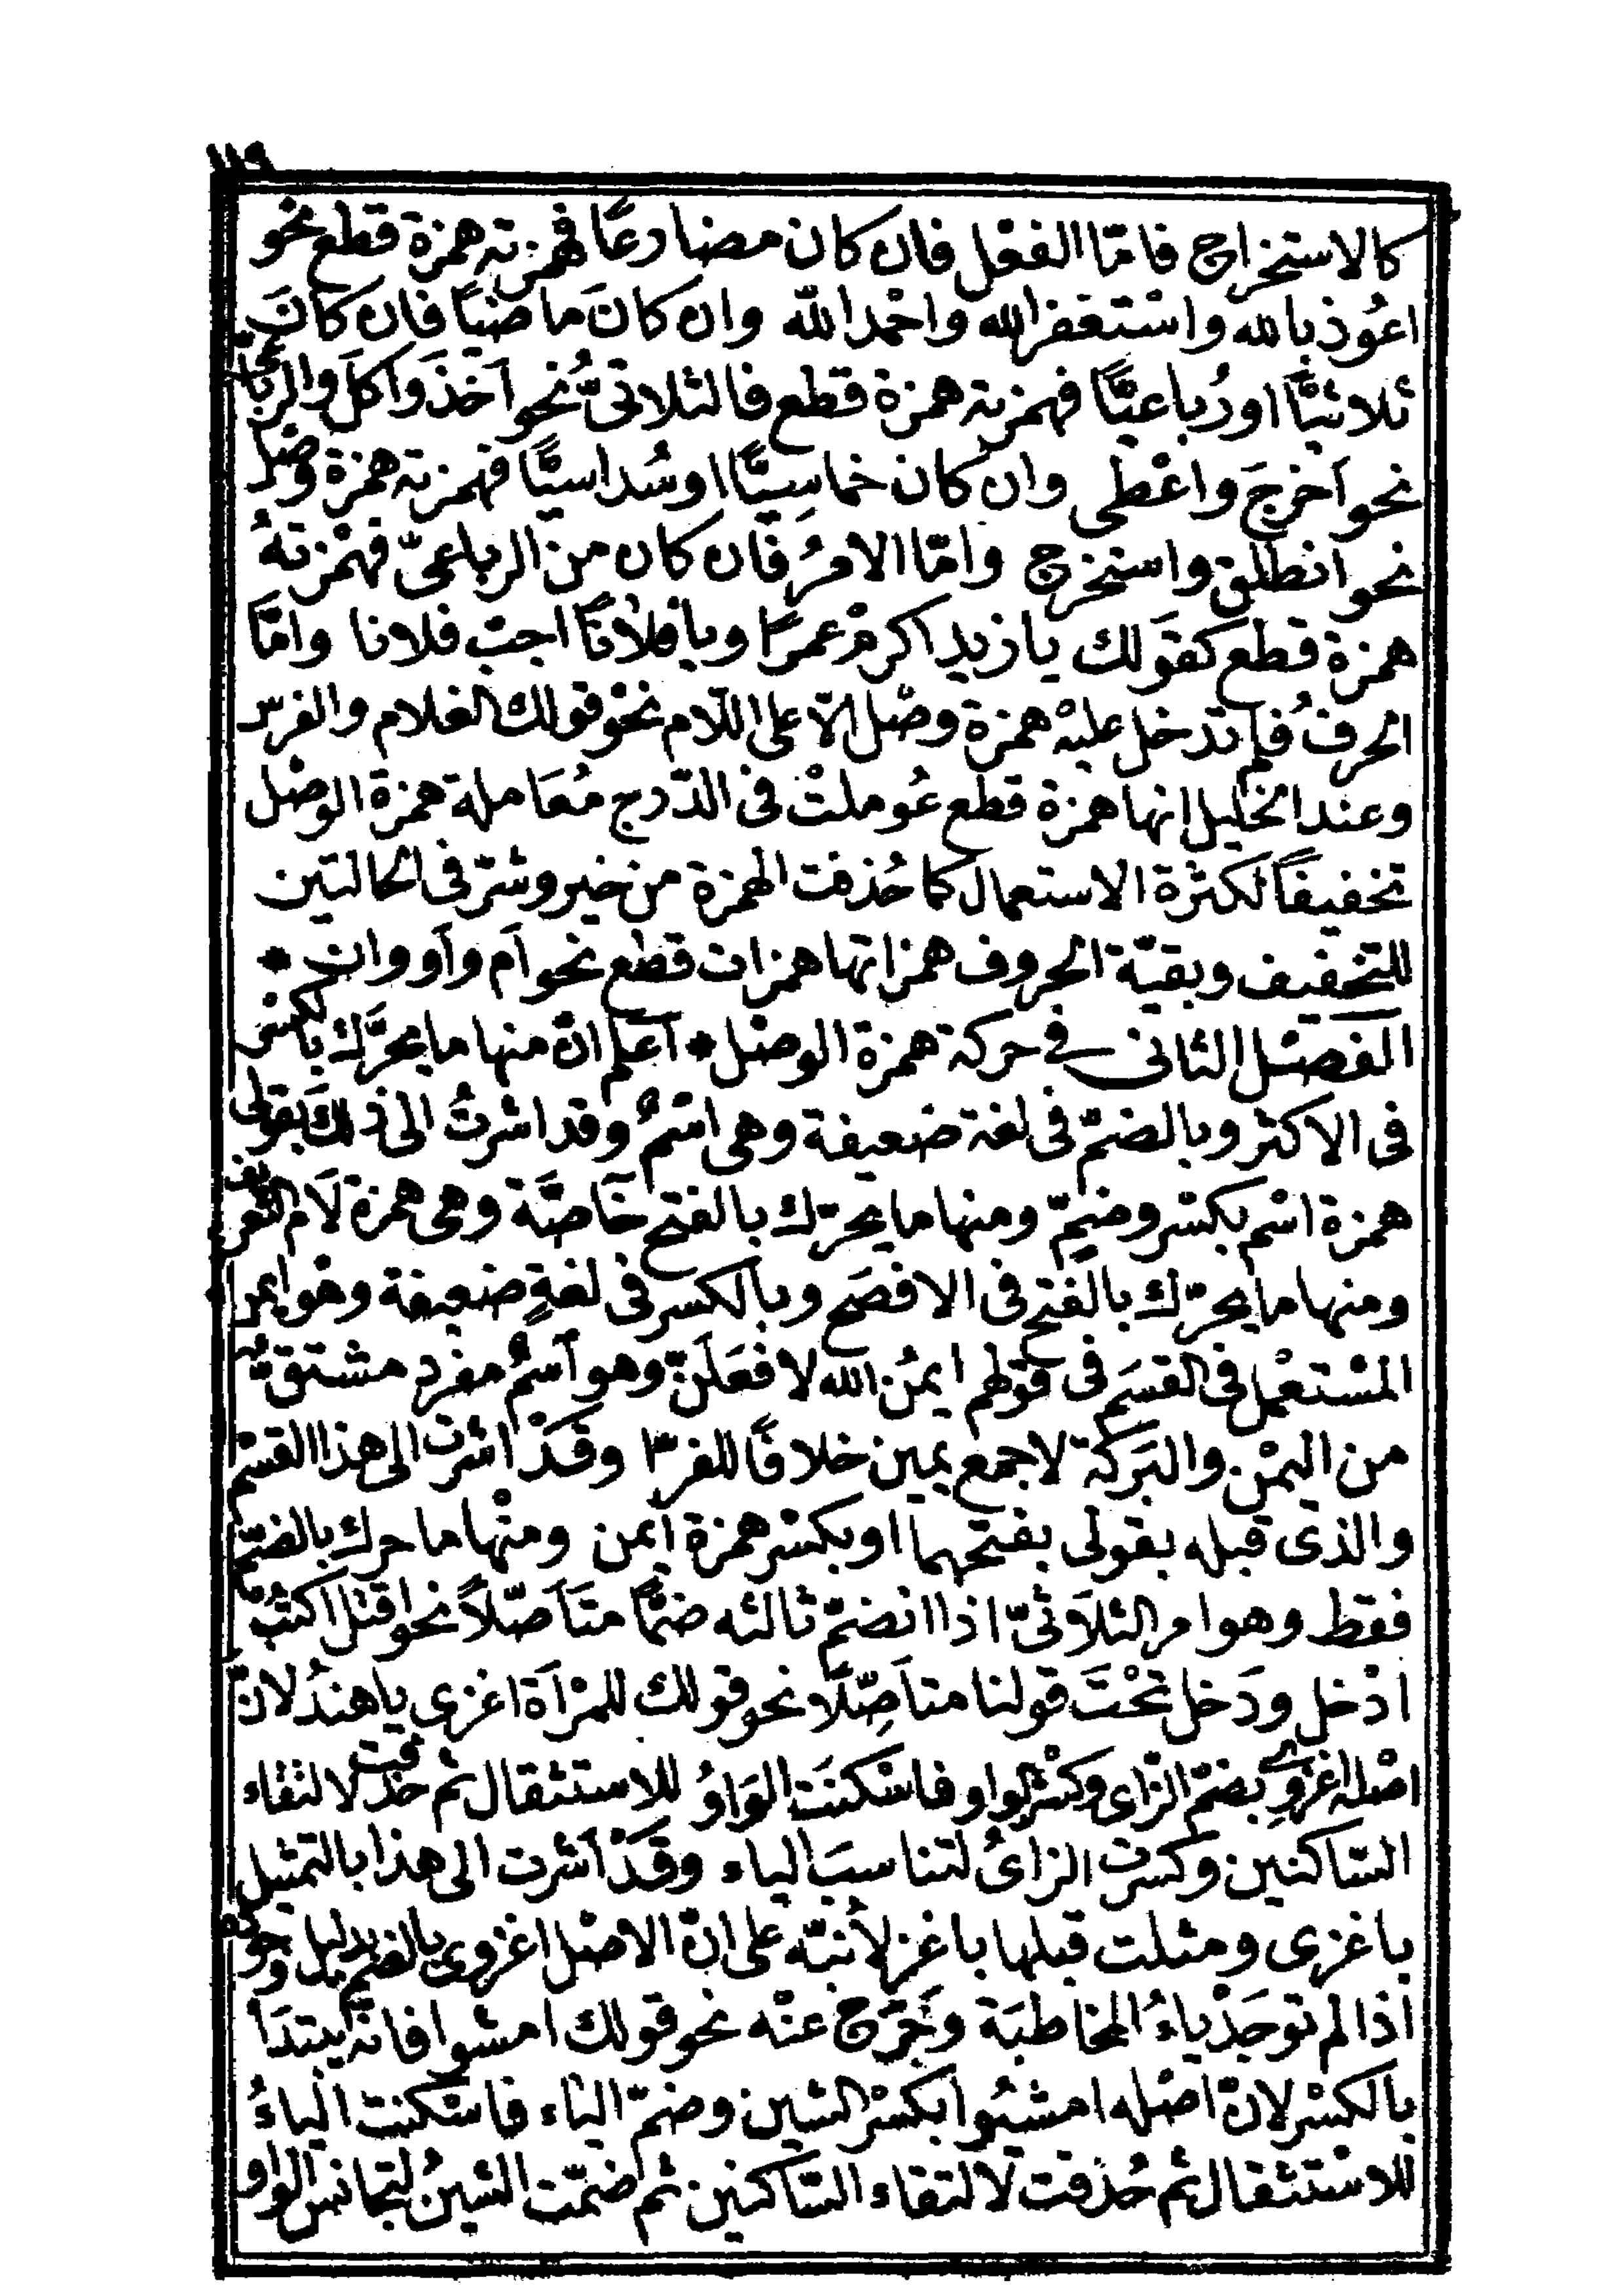 ١١٩
كالاستخراج فامّا الفعل فان كان مضارعًا فهمزته همزة قطع نحو
اعُوذ بالله واسْتغفر الله واحْمد الله وان كانَ ماضيًا فان كانَ
ثلاثيًّا او رُباعيًّا فهمزته همزة قطع فالثلاثىُّ نحو اَخذَ واَكلَ والرباعىّ
نحو اَخرجَ واعْطى وان كان خماسِيًّا او سُداسيًّا فهمزته همزة وصْل
نحو انطلق واستخرج وامّا الامرُ فان كان من الرباعىّ فهمْزتهُ
همزة قطع كقوَلك يا زيد اكرمْ عمرًا ويا فلانًا اجبْ فلانا وامّا
الحرفُ فلم تدخل عليْه همزة وصْل الّا على اللّام نحْو قولك الغلام والفرس
وعند الخليل انها همزة قطع عُوملتْ فى الدّرج مُعَاملة همزة الوصْل
تخفيفاً لكثرة الاستعمال كما حُذفت الهمزة من خير وشرّ فى الحالتين
للتخفيف وبقيّة الحروف همزاتها همزات قطع نحو اَم واَو وان *
الفصْل الثانى فى حركة همزة الوصْل * اَعلم انّ منها ما يحرَّك بالكسْر
فى الاكثر وبالضمّ فى لغة ضعيفة وهى اسْمٌ وقد اشرتُ الى ذلكَ بقولى
همزة اسْم بكسْر وضمٍّ ومنها ما يحرّك بالفتح خاَصَّة وهى همزة لَام التعريف
ومنها ما يحرّك بالفتح فى الافصَح وبالكسر فى لغةٍ ضعيفة وهْو ايمن
المسْتعْمل فى القسَم فى قوْلهم ايمُن الله لافعَلَنّ وهو اَسمٌ مفرد مشتق
من اليمْن والبَركة لا جمع يمين خلافًا للفرّا وقَدْ اشرت الى هذا القسْم
والذى قبله بقولى بفتحهما او بكسْر همزة اَيمن ومنْها ما حرك بالضمّ
فقط وهو امر الثلاَثىّ اذا انضمّ ثالثه ضمًّا متَأصّلاً نحو اقتل اكتُبْ
ادْخل ودَخل تحْتَ قولنا متأصِّلًا نحو قولك للمرْأة اغزى يا هندُ لانّ
اصْله اغزُوِى بضمّ الزّاى وكسْر الواو فاسْكنَت الوَاوُ للاستثقال ثم حذفت لالتقاء
السّاكنين وكسرت الزاىُ لتناسبَ الياء وقَدْ اَشرت الى هذا بالتمثيل
باغزى ومثلت قبلها باغز لأنبّه على انّ الاصْل اغزوى بالضم بدليل وجوده
اذا لم توجَدْ ياءُ المخاطبَة وخَرَج عنْه نحو قولك امشوا فانه يبتدَأ
بالكسْر لانّ اصْله امشيُوا بكسْر الشين وضمّ الياء فاسْكنت الياءُ
للاسْتثقال ثم حُذفت لالتقاء السّاكنين ثم ضمّت الشينُ لتجانس الواو